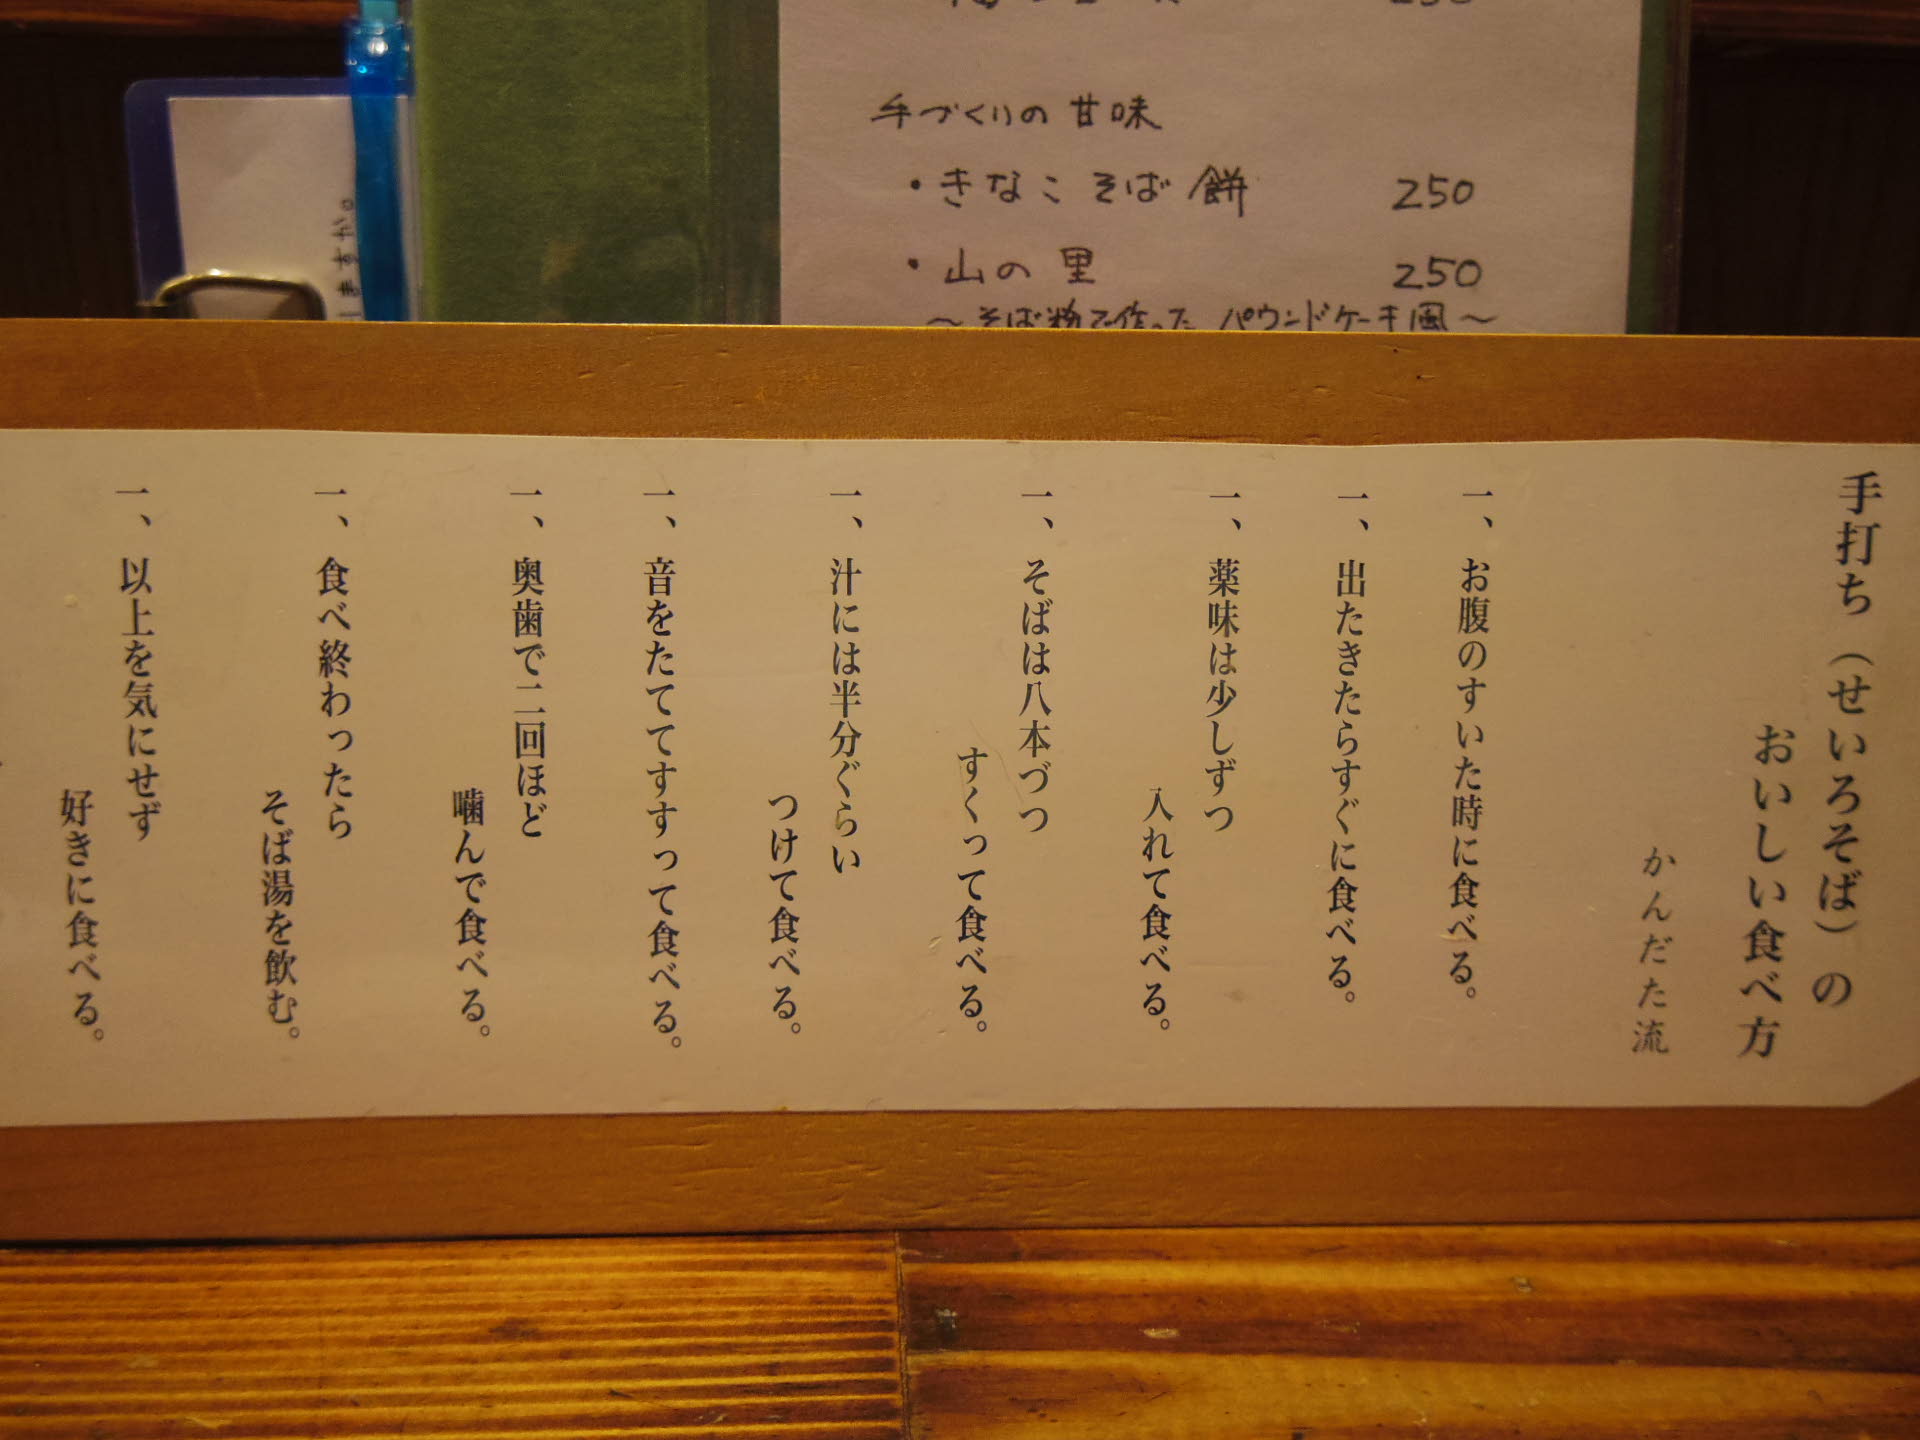 手づくりの甘味
・きなこそば餅 250
・山の里 250
～そば粉で作った パウンドケーキ風～
ますか。
手打ち（せいろそば）の
おいしい食べ方
かんだた流
一、お腹のすいた時に食べる。
一、出たきたらすぐに食べる。
一、薬味は少しずつ
入れて食べる。
一、そばは八本づつ
すくって食べる。
一、汁には半分ぐらい
つけて食べる。
一、音をたててすすって食べる。
一、奥歯で二回ほど
噛んで食べる。
一、食べ終わったら
そば湯を飲む。
一、以上を気にせず
好きに食べる。